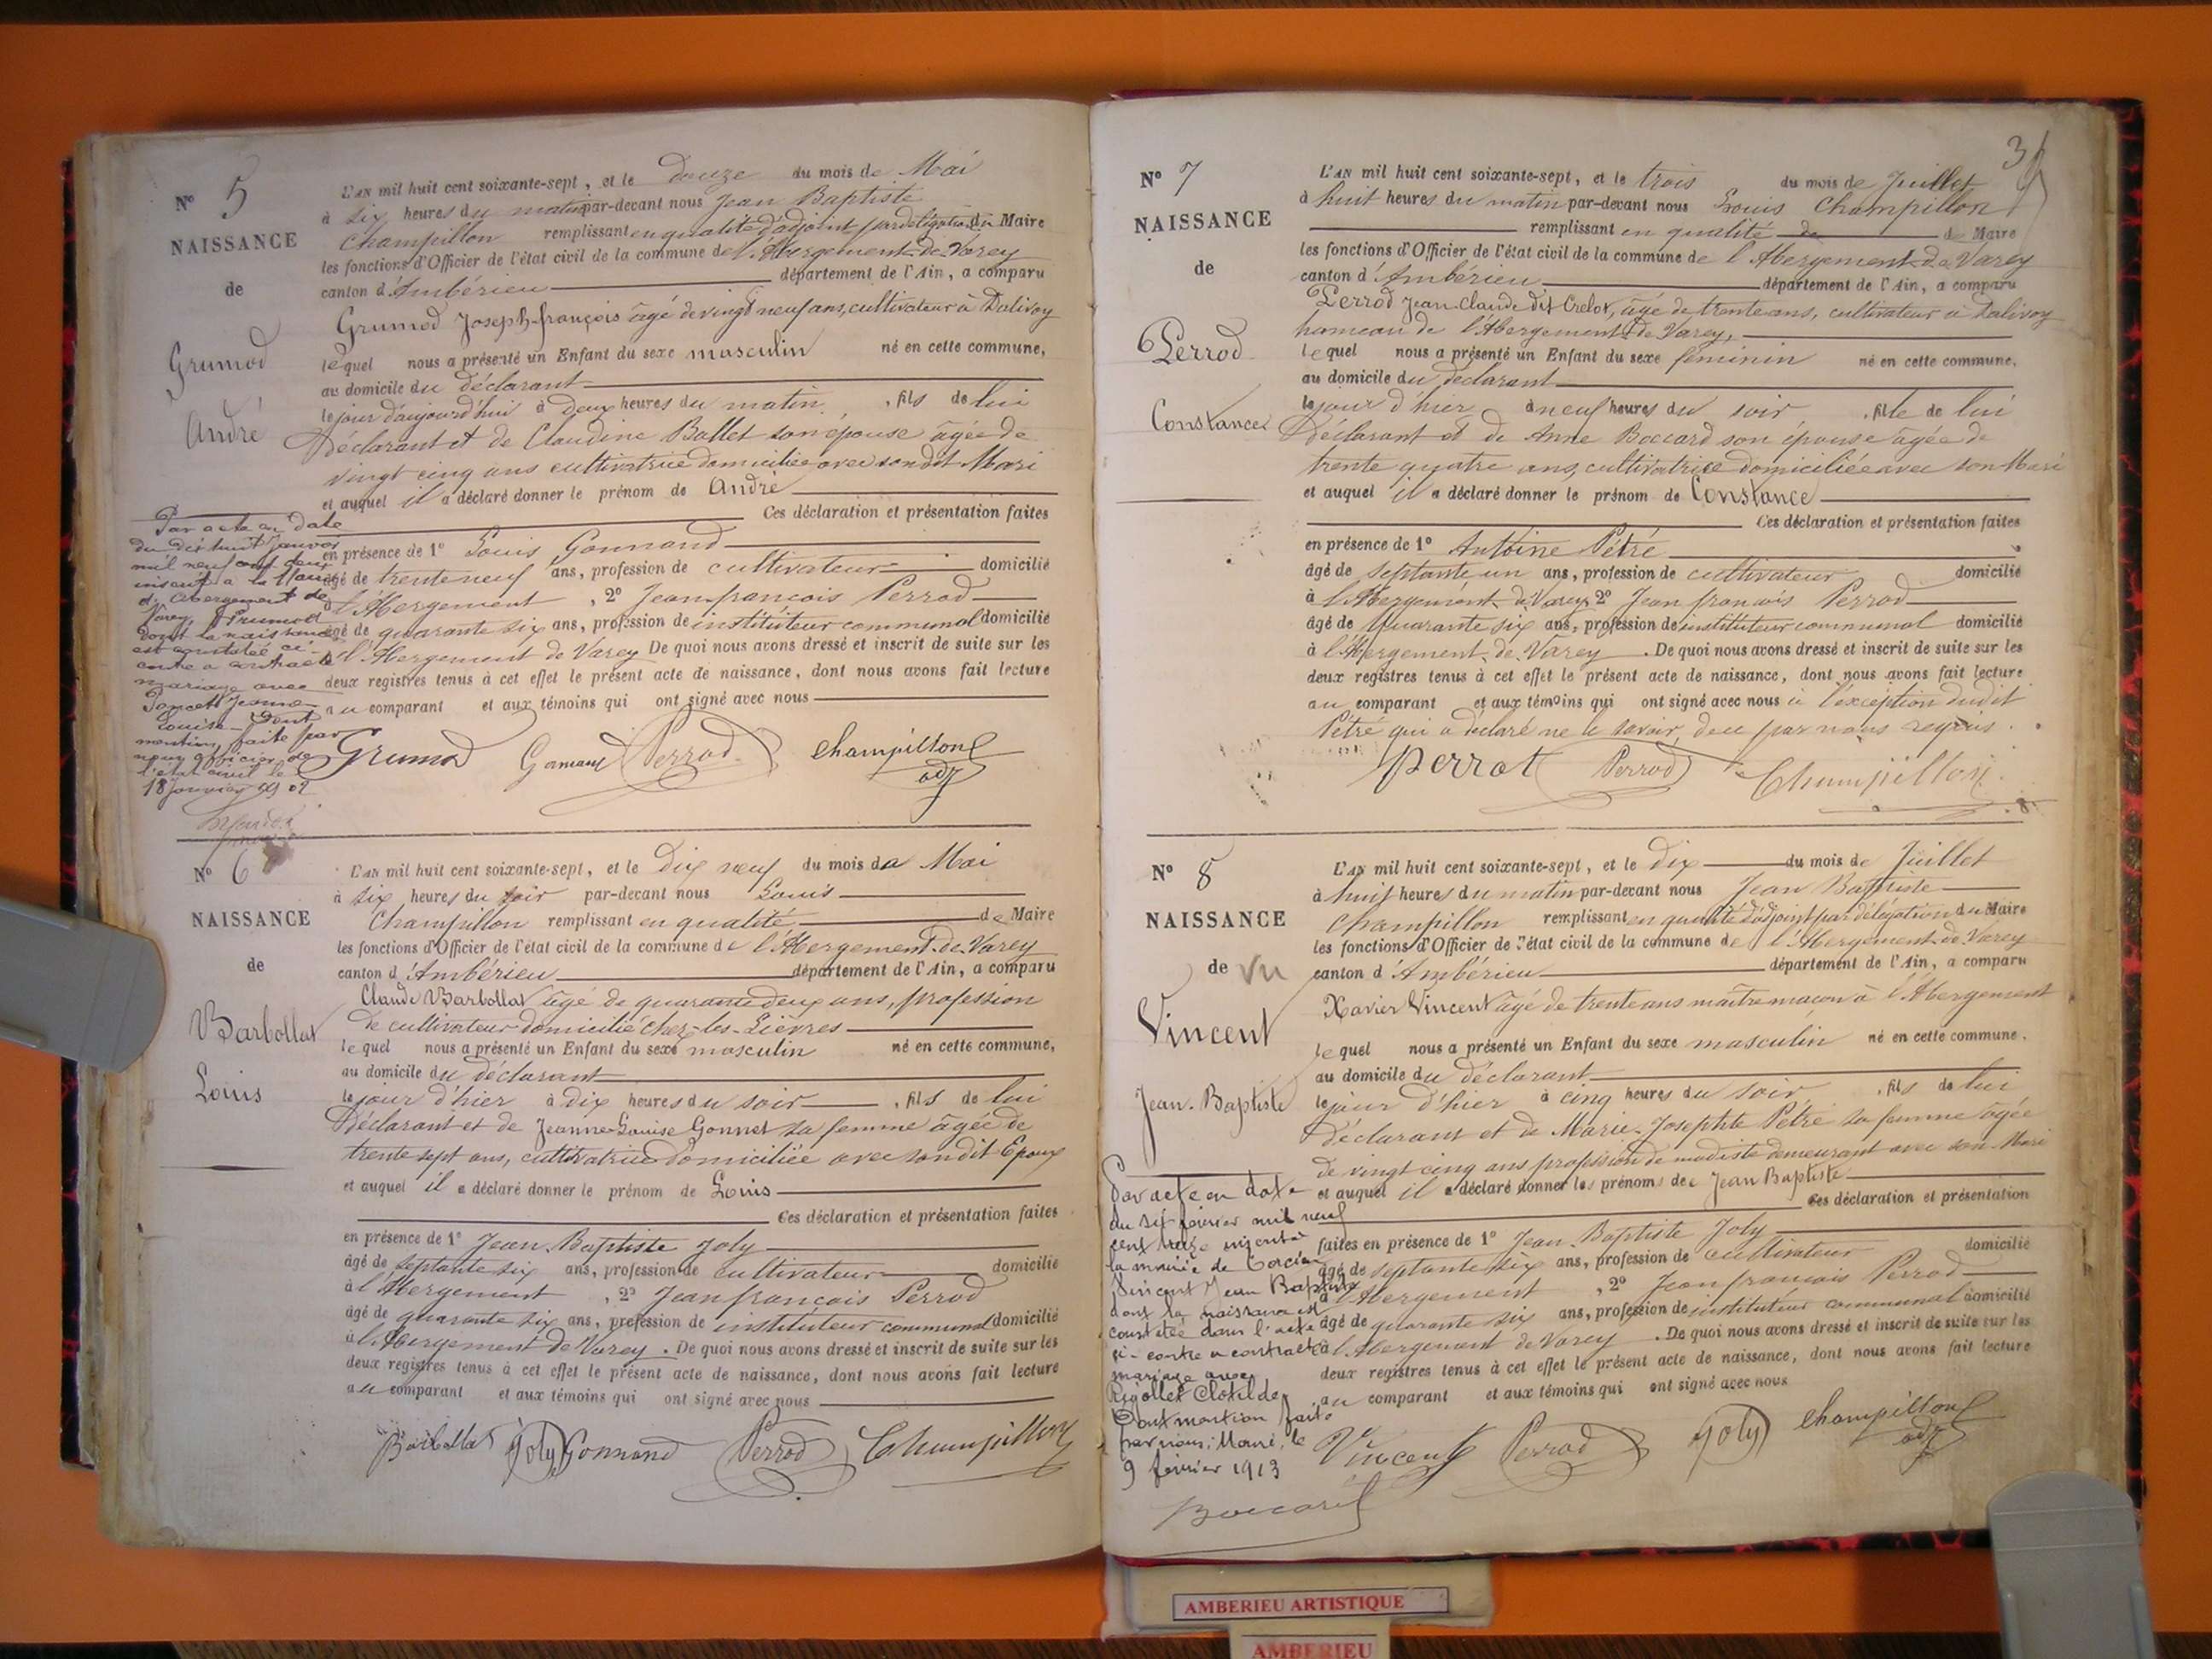 N° 5
NAISSANCE
de
Grumod
André
L'AN mil huit cent soixante-sept, et le Douze du mois de Mai
à six heures du matin par-devant nous Jean Baptiste
Champillon remplissant en qualité d'adjoint par délégation du Maire
les fonctions d'Officier de l'état civil de la commune de l'Abergement-de-Varey
canton d'Ambérieu département de l'Ain, a comparu
Grumod Joseph-françois âgé de vingt neuf ans, cultivateur à Dalivoy
lequel nous a présenté un Enfant du sexe masculin né en cette commune,
au domicile du déclarant
le jour d'aujourd'hui à Deux heures du matin, fils de lui
Déclarant et de Claudine Ballet son épouse âgée de
vingt cinq ans cultivatrice domiciliée avec son dit Mari
et auquel il a déclaré donner le prénom de André
Ces déclaration et présentation faites
en présence de 1° Louis Gonnand
âgé de trente neuf ans, profession de cultivateur domicilié
à l'Abergement, 2° Jean françois Perrod
âgé de quarante six ans, profession de instituteur communal domicilié
à l'Abergement de Varey De quoi nous avons dressé et inscrit de suite sur les
deux registres tenus à cet effet le présent acte de naissance, dont nous avons fait lecture
au comparant et aux témoins qui ont signé avec nous
Grumod Gonnand Perrod Champillon
adj
Par acte en date
du dix huit janvier
mil neuf cent deux
inscrit à la Mairie
d'Abergement de
Varey, Grumod
dont la naissance
est constatée ci-
contre a contracté
mariage avec
Poncet Jeanne
Louise Dont
mention faite par
nous officier de
l'état civil le
18 janvier 1902
N° 6
NAISSANCE
de
Barbollat
Louis
L'AN mil huit cent soixante-sept, et le Dix neuf du mois de Mai
à six heures du soir par-devant nous Louis
Champillon remplissant en qualité de Maire
les fonctions d'Officier de l'état civil de la commune de l'Abergement-de-Varey
canton d'Ambérieu département de l'Ain, a comparu
Claude Barbollat âgé de quarante deux ans, profession
de cultivateur domicilié chez-les-Lièvres
lequel nous a présenté un Enfant du sexe masculin né en cette commune,
au domicile du déclarant
le jour d'hier à dix heures du soir, fils de lui
Déclarant et de Jeanne-Louise Gonnet sa femme âgée de
trente sept ans, cultivatrice domiciliée avec son dit Epoux
et auquel il a déclaré donner le prénom de Louis
Ces déclaration et présentation faites
en présence de 1° Jean-Baptiste Joly
âgé de septante six ans, profession de cultivateur domicilié
à l'Abergement, 2° Jean françois Perrod
âgé de quarante six ans, profession de instituteur communal domicilié
à l'Abergement de Varey. De quoi nous avons dressé et inscrit de suite sur les
deux registres tenus à cet effet le présent acte de naissance, dont nous avons fait lecture
au comparant et aux témoins qui ont signé avec nous
Barbollat Joly Gonnand Perrod Champillon
3
N° 7
NAISSANCE
de
Perrod
Constance
L'AN mil huit cent soixante-sept, et le trois du mois de Juillet
à huit heures du matin par-devant nous Louis Champillon
remplissant en qualité de de Maire
les fonctions d'Officier de l'état civil de la commune de l'Abergement-de-Varey
canton d'Ambérieu département de l'Ain, a comparu
Perrod Jean-Claude dit Crelot, âgé de trente ans, cultivateur à Dalivoy
hameau de l'Abergement-de-Varey,
lequel nous a présenté un Enfant du sexe féminin né en cette commune.
au domicile du déclarant
le jour d'hier à neuf heures du soir, fille de lui
Déclarant et de Anne Boccard son épouse âgée de
trente quatre ans, cultivatrice domiciliée avec son Mari
et auquel il a déclaré donner le prénom de Constance
Ces déclaration et présentation faites
en présence de 1° Antoine Pétré
âgé de septante un ans, profession de cultivateur domicilié
à l'Abergement-de-Varey 2° Jean françois Perrod
âgé de Quarante six ans, profession de instituteur communal domicilié
à l'Abergement-de-Varey. De quoi nous avons dressé et inscrit de suite sur les
deux registres tenus à cet effet le présent acte de naissance, dont nous avons fait lecture
au comparant et aux témoins qui ont signé avec nous à l'exception dudit
Pétré qui a déclaré ne le savoir, de ce par nous requis.
perrot Perrod Champillon
N° 8
NAISSANCE
de Vu
Vincent
Jean-Baptiste
L'AN mil huit cent soixante-sept, et le Dix du mois de Juillet
à huit heures du matin par-devant nous Jean Baptiste
Champillon remplissant en qualité d'adjoint par délégation du Maire
les fonctions d'Officier de l'état civil de la commune de l'Abergement-de-Varey
canton d'Ambérieu département de l'Ain, a comparu
Xavier Vincent âgé de trente ans maître maçon à l'Abergement
lequel nous a présenté un Enfant du sexe masculin né en cette commune.
au domicile du déclarant
le jour d'hier à cinq heures du soir, fils de lui
Déclarant et de Marie-Josephte Pétré sa femme âgée
de vingt cinq ans profession de modiste demeurant avec son Mari
et auquel il a déclaré donner les prénoms de Jean Baptiste
Ces déclaration et présentation
faites en présence de 1° Jean-Baptiste Joly
âgé de septante six ans, profession de cultivateur domicilié
à l'Abergement, 2° Jean françois Perrod
âgé de quarante six ans, profession de instituteur communal domicilié
à l'Abergement de Varey. De quoi nous avons dressé et inscrit de suite sur les
deux registres tenus à cet effet le présent acte de naissance, dont nous avons fait lecture
au comparant et aux témoins qui ont signé avec nous
Vincent Perrod Joly Champillon
adj
Par acte en date
du six février mil neuf
cent treize inscrit à
la mairie de Torcieu
Vincent Jean Baptiste
dont la naissance est
constatée dans l'acte
ci-contre a contracté
mariage avec
Rigollet Clotilde
Dont mention faite
par nous, Maire, le
9 février 1913
Boccard
AMBERIEU ARTISTIQUE
AMBERIEU